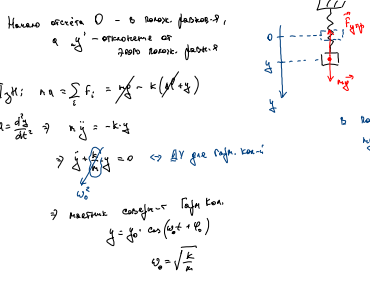 Начало отсчёта O - в полож. равнов-я,
а y - отклонение от
этого полож. равн-я
IIзН: ma = ∑ Fᵢ = mg - k(Δl + y)
a = d²y/dt² ⇒ mÿ = -k·y
⇒ ÿ + k/m y = 0 ⇔ ДУ для гарм. кол-й
ω₀²
⇒ маятник соверш-т Гарм кол.
y = y₀ · cos(ω₀t + φ₀)
ω₀ = √k/m
O
y
y
F упр
mg